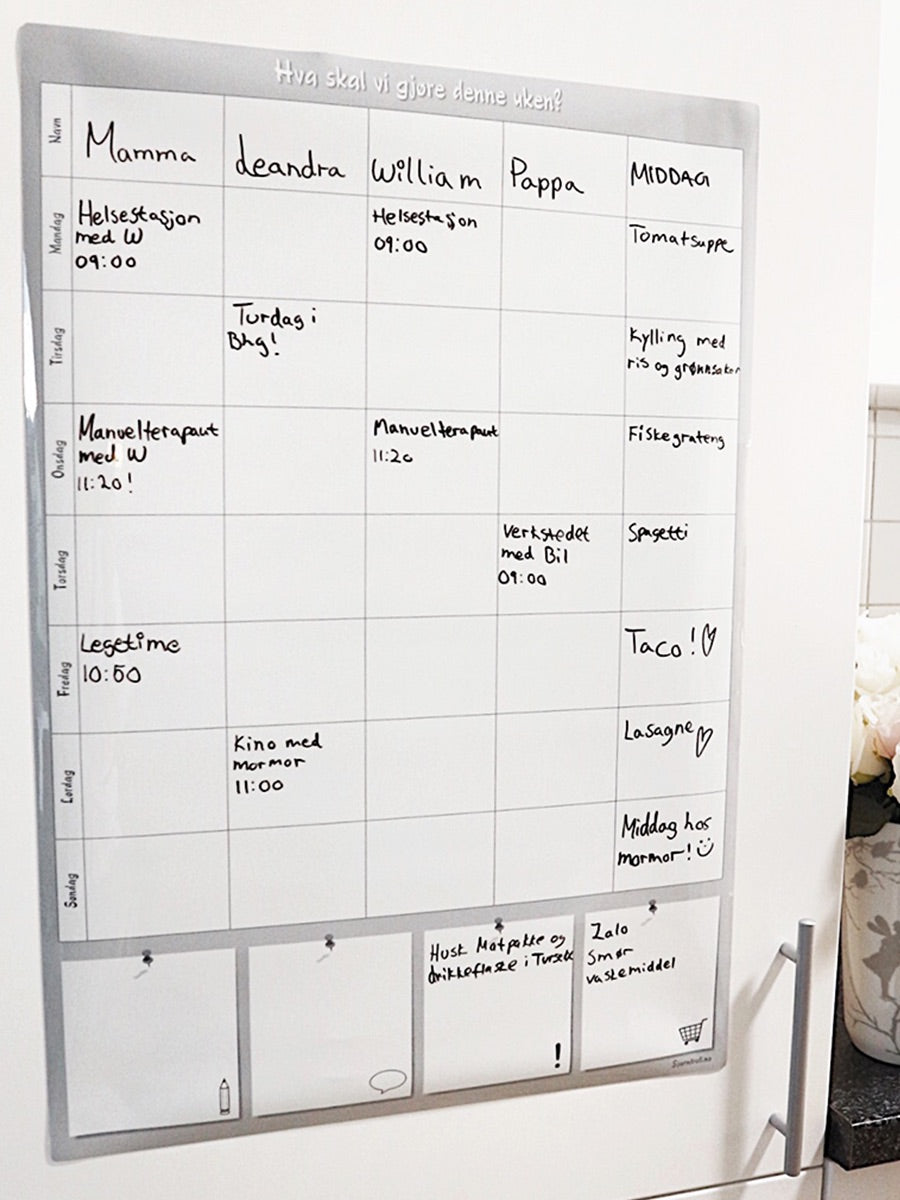 Hva skal vi gjøre denne uken?
Navn
Mamma
Leandra
William
Pappa
MIDDAG
Mandag
Helsestasjon
med W
09:00
Helsestasjon
09:00
Tomatsuppe
Tirsdag
Turdag i
Bhg!
Kylling med
ris og grønnsaker
Onsdag
Manuelterapaut
med W
11:20!
Manuelterapaut
11:20
Fiskegrateng
Torsdag
Verkstedet
med Bil
09:00
Spagetti
Fredag
Legetime
10:50
Taco!
Lørdag
Kino med
mormor
11:00
Lasagne
Søndag
Middag hos
mormor!
Husk Matpakke og
drikkeflaske i
!
Zalo
Smør
vaskemiddel